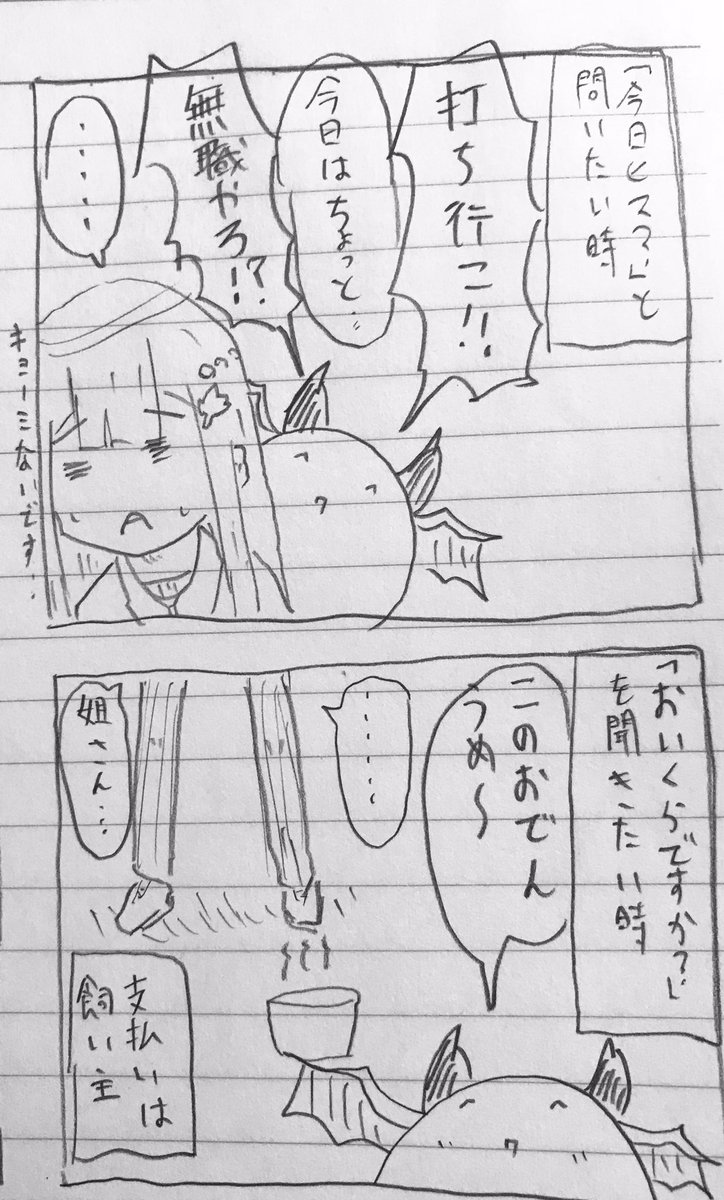 「今日ヒマ?」と
問いたい時
打ち行こ!!
今日はちょっと…
無職やろ!?
・・・・・
キョーミないです・
「おいくらですか?」
を聞きたい時
このおでん
うめ〜
・・・・・
姐さん…
支払いは
飼い主